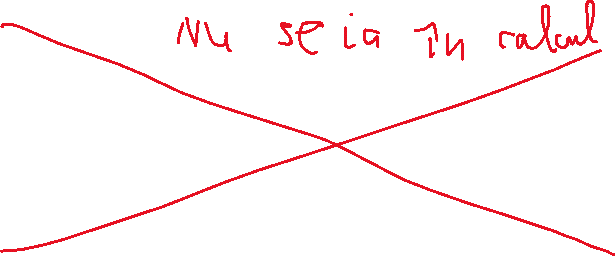 Nu se ia în calcul